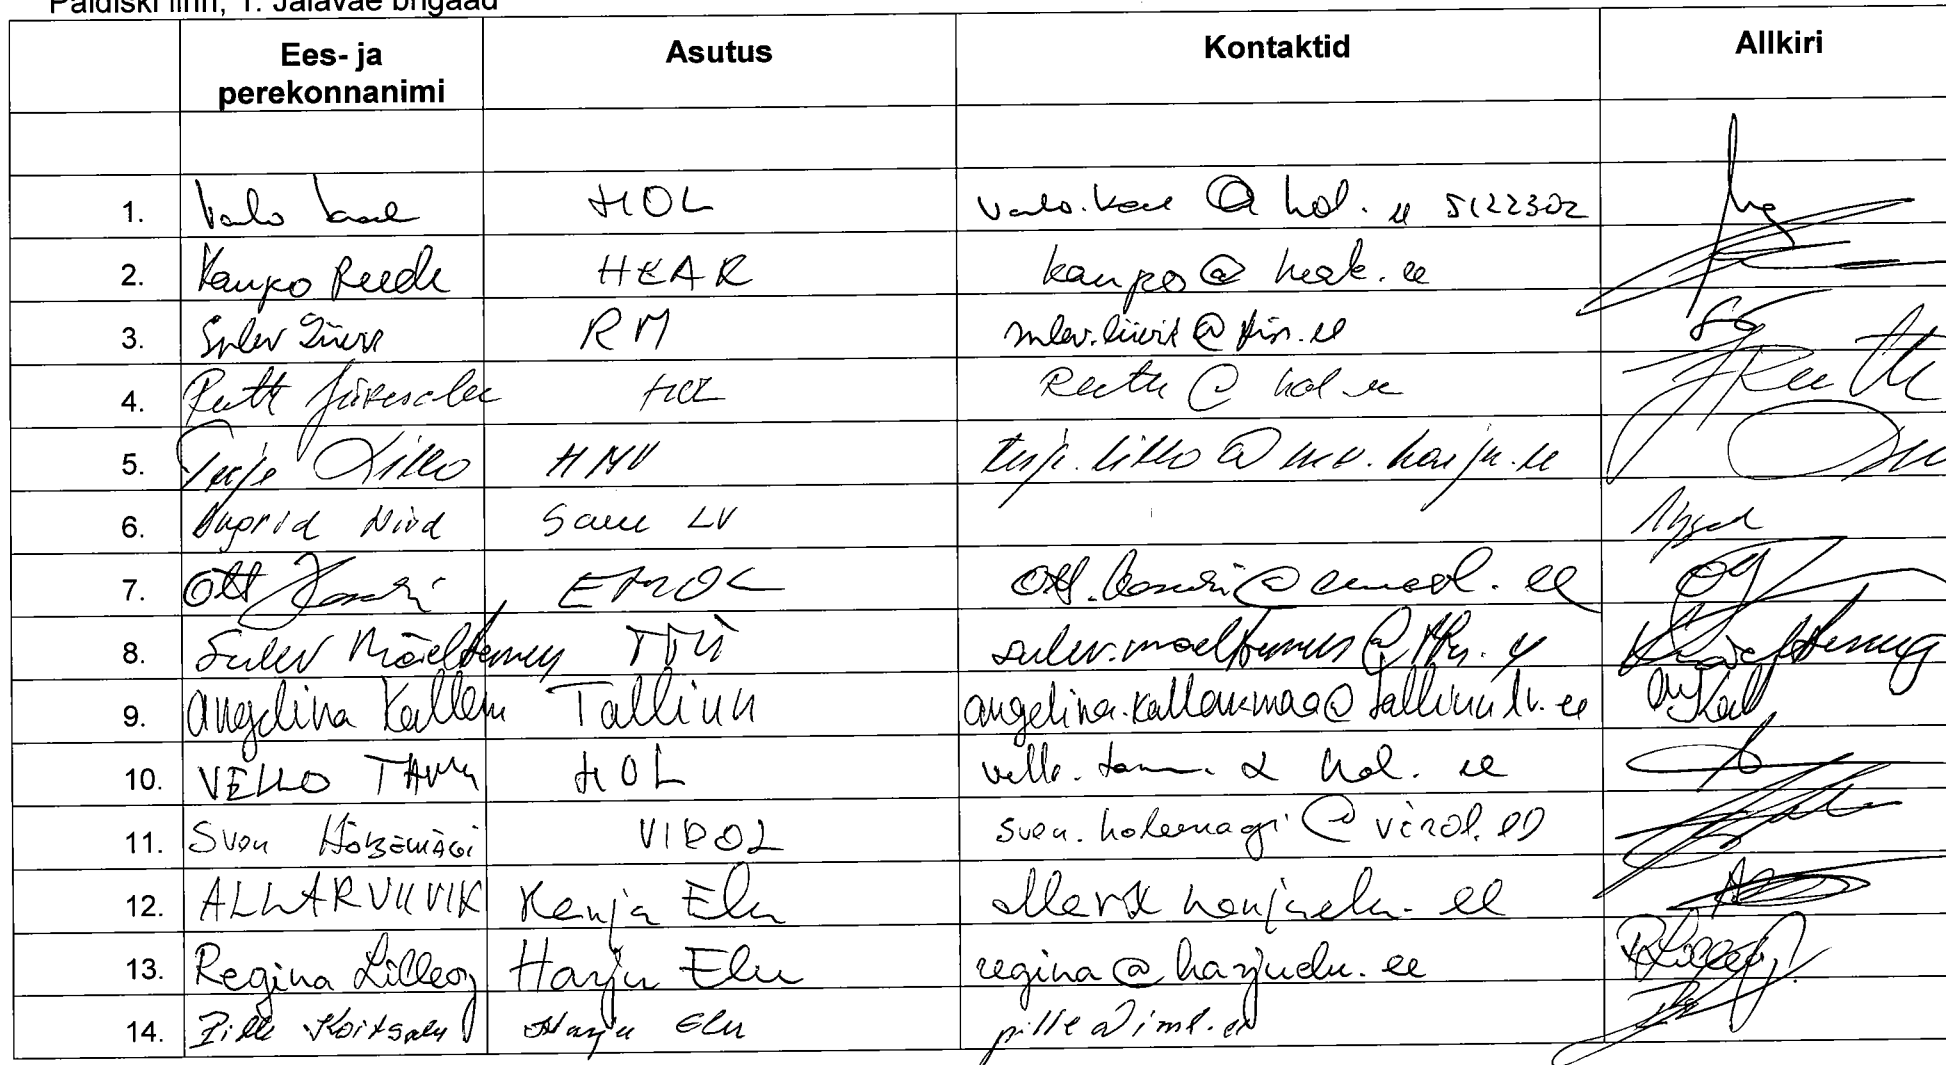 Paldiski linn, 1. Jalaväe brigaad
Ees- ja perekonnanimi Asutus Kontaktid Allkiri
1. Vello HOL @ hol.ee
2. Kaupo Reede HEAK kaupo@heak.ee
3. Sulev Liivik RM sulev.liivik@fin.ee
4. Ruth HOL Ruth@hol.ee
5. Terje Lillo HMV terje.lillo@mv.harju.ee
6. Ingrid Saue LV
7. Ott Kasuri EMOL ott.kasuri@emovl.ee
8. Sulev Mäeltsemees TTÜ
9. Angelina Kallem Tallinn angelina.kallakmaa@tallinnlv.ee
10. VELLO TAMM HOL vello.tamm @ hol.ee
11. Sven Hõbemägi VIROL sven.hobemagi@virol.ee
12. ALLAR VIIVIK Harju Elu allar@harjuelu.ee
13. Regina Lilleorg Harju Elu regina@harjuelu.ee
14. Pille Koitsalu Harju Elu pille@iml.ee